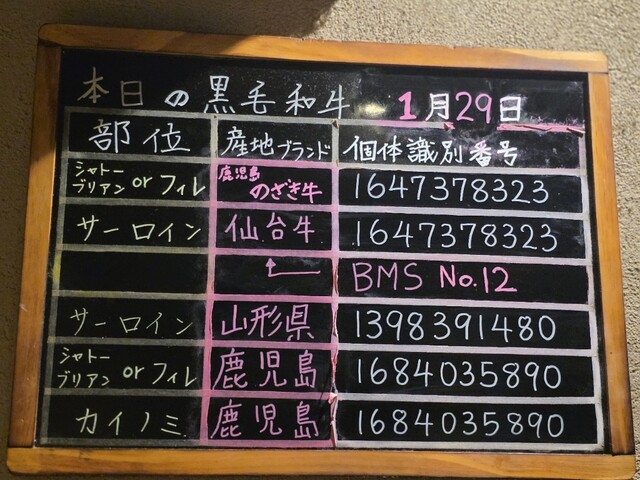 本日の黒毛和牛 1月29日
部位 産地ブランド 個体識別番号
シャトーブリアン or フィレ 鹿児島 のざき牛 1647378323
サーロイン 仙台牛 1647378323
BMS No.12
サーロイン 山形県 1398391480
シャトーブリアン or フィレ 鹿児島 1684035890
カイノミ 鹿児島 1684035890